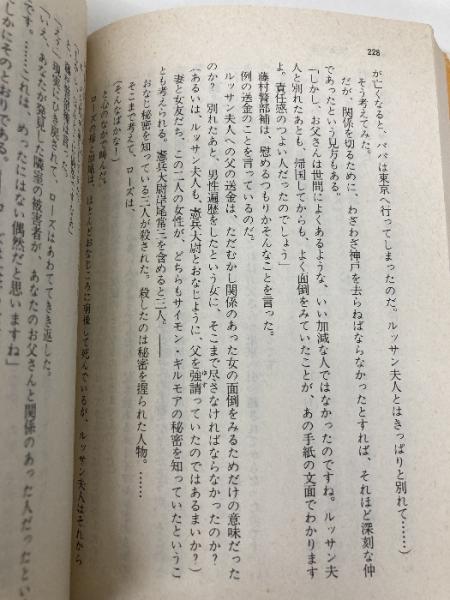 228
が亡くなると、パパは東京へ行ってしまったのだ。ルッサン夫人とはきっぱりと別れて……）
そう考えてみた。
だが、関係を切るために、わざわざ神戸を去らねばならなかったとすれば、それほど深刻な仲
であったという見方もある。
「しかし、お父さんは世間によくあるような、いい加減な人ではなかったのですね。ルッサン夫
人と別れたあとも、帰国してからも、よく面倒をみていたことが、あの手紙の文面でわかります
よ。責任感のつよい人だったのでしょう」
藤村警部補は、慰めるつもりかそんなことを言った。
例の送金のことを言っているのだ。
ルッサン夫人への父の送金は、ただむかし関係のあった女の面倒をみるためだけの意味だった
のか？　別れたあと、男性遍歴をしたという女に、そこまで尽さなければならなかったのか？
（あるいは、ルッサン夫人も、憲兵大尉とおなじように、父を強請っていたのではあるまいか？）
ゆす
妻と女友だち、この二人の女性が、どちらもサイモン・ギルモアの秘密を知っていたというこ
とも考えられる。憲兵大尉岸尾常三を含めると三人。――
おなじ秘密を知っている三人が殺された。殺したのは秘密を握られた人物。……
そこまで考えて、ローズは、
（そんなばかな！）
と心のなかで叫んだ。
ローズの母と加尾は、ほとんどおなじころに前後して死んでいるが、ルッサン夫人はそれから
「えっ」
現実にひき戻されて、ローズはあわててきき返した。
「いえ、あなたが発見した隣室の被害者が、あなたのお父さんと関係のあった人だったとい
です。……これは、めったにはない偶然だと思いますね」
しかにそのとおりである。